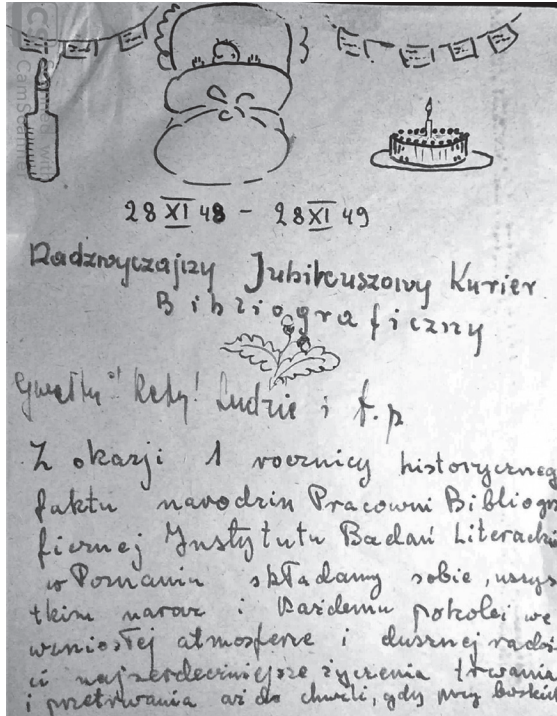 28 XI 48 – 28 XI 49
Nadzwyczajny Jubileuszowy Kurier
Bibliograficzny
Ludzie i t.p
Z okazji 1 rocznicy historyczneg
faktu narodzin Pracowni Bibliogra
ficznej Instytutu Badań Literacki
w Poznaniu składamy sobie, wszys
tkim naraz i każdemu pokolei we
wzniosłej atmosferze i dusznej radoś
ci najserdeczniejsze życzenia trwania
i przetrwania aż do chwili, gdy przy
CamScanner